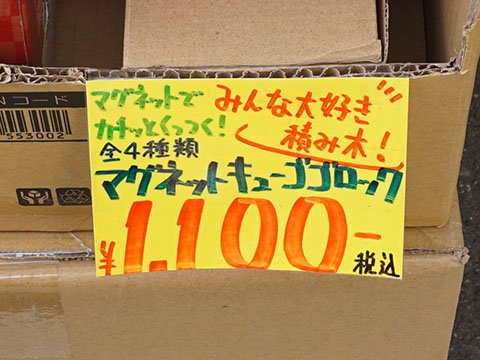 マグネットで
カチッとくっつく!
全4種類
みんな大好き
積み木!
マグネットキューブブロック
¥1,100-
税込
Nコード
553002